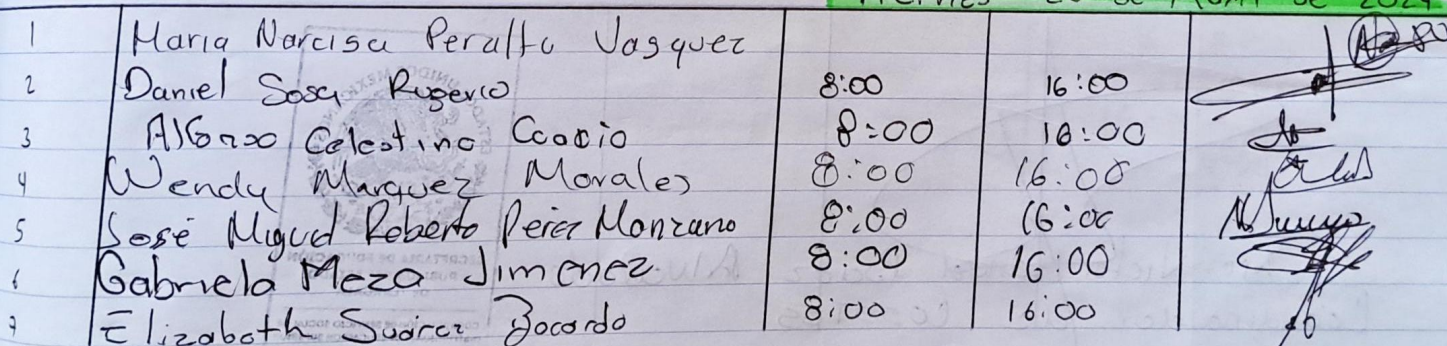 Viernes de de 2024
1 Maria Narcisa Peralta Vasquez
2 Daniel Sosa Rugerio 8:00 16:00
3 Alfonso Celestino 8:00 16:00
4 Wendy Marquez Morales 8:00 16:00
5 José Miguel Roberto Perez Monzano 8:00 16:00
6 Gabriela Meza Jimenez. 8:00 16:00
7 Elizabeth Suárez Bocardo 8:00 16:00